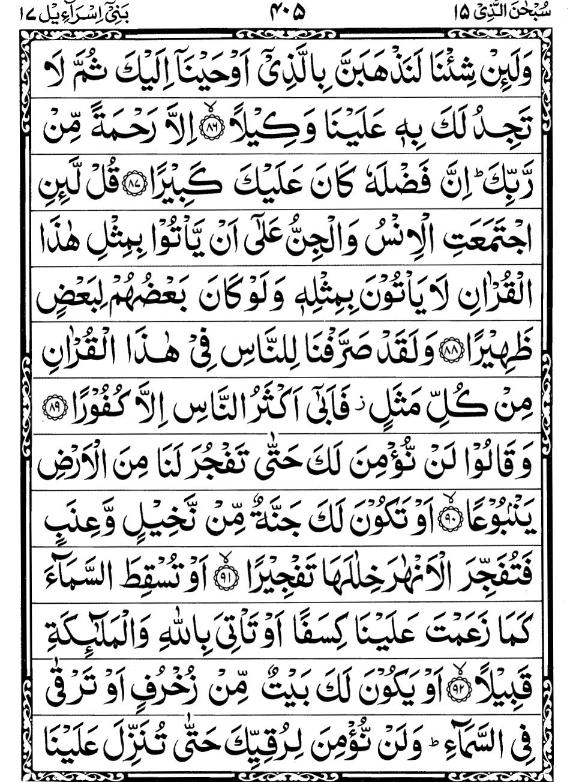 سُبۡحٰنَ الَّذِیۡۤ ۱۵ ۴۰۵ بَنِیۡۤ اِسۡرَآءِیۡل ۱۷
وَلَئِنۡ شِئۡنَا لَنَذۡهَبَنَّ بِالَّذِىۡۤ اَوۡحَيۡنَاۤ اِلَيۡكَ ثُمَّ لَا
تَجِدُ لَكَ بِهٖ عَلَيۡنَا وَكِيۡلًاۙ‏ ﴿۸۶﴾ اِلَّا رَحۡمَةً مِّنۡ
رَّبِّكَ‌ ؕ اِنَّ فَضۡلَهٗ كَانَ عَلَيۡكَ كَبِيۡرًا‏ ﴿۸۷﴾ قُلْ لَّئِنِ
اجۡتَمَعَتِ الۡاِنۡسُ وَالۡجِنُّ عَلٰٓى اَنۡ يَّاۡتُوۡا بِمِثۡلِ هٰذَا
الۡقُرۡاٰنِ لَا يَاۡتُوۡنَ بِمِثۡلِهٖ وَلَوۡ كَانَ بَعۡضُهُمۡ لِبَعۡضٍ
ظَهِيۡرًا‏ ﴿۸۸﴾ وَلَقَدۡ صَرَّفۡنَا لِلنَّاسِ فِىۡ هٰذَا الۡقُرۡاٰنِ
مِنۡ كُلِّ مَثَلٍ ز فَاَبٰٓى اَكۡثَرُ النَّاسِ اِلَّا كُفُوۡرًا‏ ﴿۸۹﴾
وَقَالُوۡا لَنۡ نُّؤۡمِنَ لَكَ حَتّٰى تَفۡجُرَ لَنَا مِنَ الۡاَرۡضِ
يَنۡۢبُوۡعًاۙ‏ ﴿۹۰﴾ اَوۡ تَكُوۡنَ لَكَ جَنَّةٌ مِّنۡ نَّخِيۡلٍ وَّعِنَبٍ
فَتُفَجِّرَ الۡاَنۡهٰرَ خِلٰلَهَا تَفۡجِيۡرًاۙ‏ ﴿۹۱﴾ اَوۡ تُسۡقِطَ السَّمَآءَ
كَمَا زَعَمۡتَ عَلَيۡنَا كِسَفًا اَوۡ تَاۡتِىَ بِاللّٰهِ وَالۡمَلٰۤٮِٕكَةِ
قَبِيۡلًاۙ‏ ﴿۹۲﴾ اَوۡ يَكُوۡنَ لَكَ بَيۡتٌ مِّنۡ زُخۡرُفٍ اَوۡ تَرۡقٰى
فِى السَّمَآءِ ؕ وَلَنۡ نُّؤۡمِنَ لِرُقِيِّكَ حَتّٰى تُنَزِّلَ عَلَيۡنَا